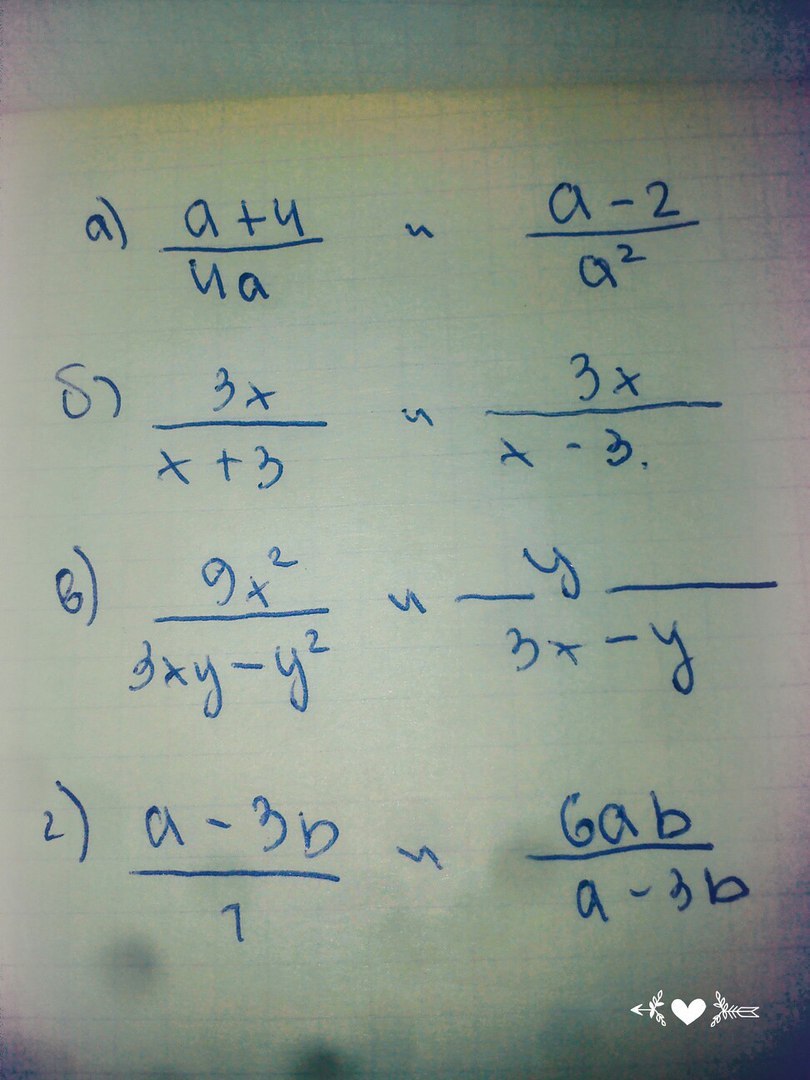 а) (a+4)/(4a) и (a-2)/(a²)
б) (3x)/(x+3) и (3x)/(x-3).
в) (9x²)/(3xy-y²) и (y)/(3x-y)
г) (a-3b)/(1) и (6ab)/(a-3b)